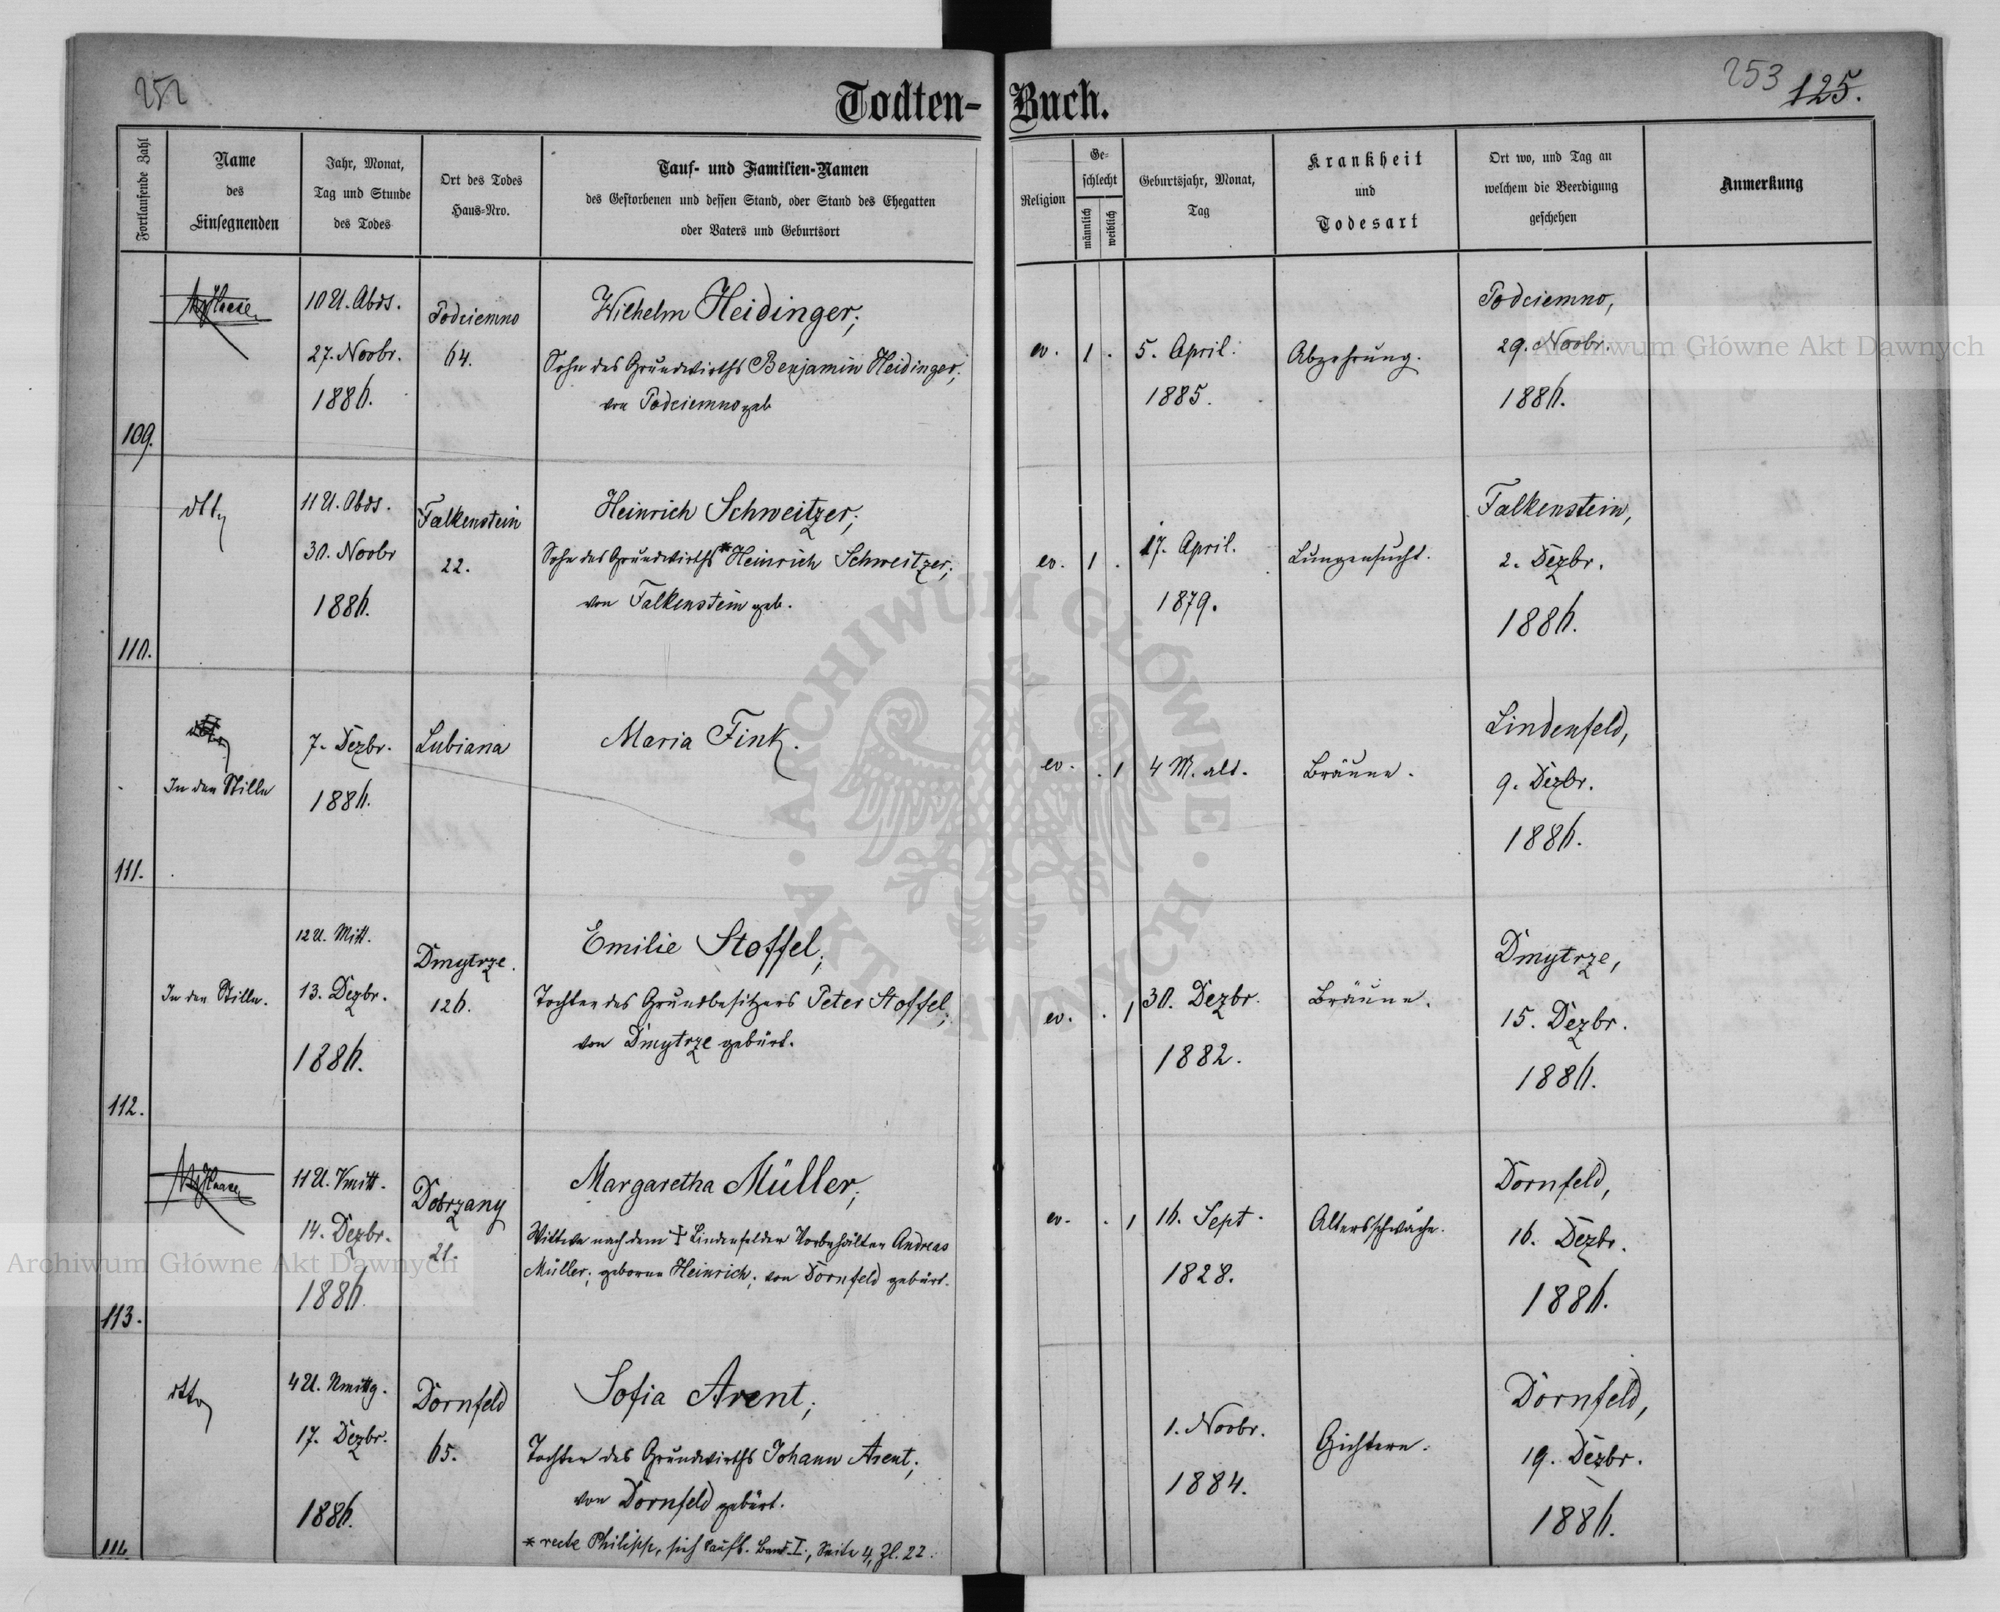 252
253
125.
Todten-Buch.
Fortlaufende Zahl
Name
des
Einsegnenden
Jahr, Monat,
Tag und Stunde
des Todes
Ort des Todes
Haus-Nro.
Tauf- und Familien-Namen
des Gestorbenen und dessen Stand, oder Stand des Ehegatten
oder Vaters und Geburtsort
Religion
Ge-
schlecht
männlich
weiblich
Geburtsjahr, Monat,
Tag
Krankheit
und
Todesart
Ort wo, und Tag an
welchem die Beerdigung
geschehen
Anmerkung
109.
10 U. Abds.
27. Novbr.
1886.
Podciemno
64.
Wilhelm Heidinger;
Sohn des Grundwirths Benjamin Heidinger;
von Podciemno geb.
ev.
1 .
5. April.
1885.
Abzehrung.
Podciemno,
29. Novbr.
1886.
110.
dtto
11 U. Abds.
30. Novbr
1886.
Falkenstein
22.
Heinrich Schweitzer;
Sohn des Grundwirths * Heinrich Schweitzer;
von Falkenstein geb.
ev.
1 .
17. April.
1879.
Lungensucht.
Falkenstein,
2. Dezbr.
1886.
111.
In der Stille
7. Dezbr.
1886.
Lubiana
Maria Fink.
ev.
. 1
4 M. alt.
Bräune.
Lindenfeld,
9. Dezbr.
1886.
112.
In der Stille.
12 U. Mitt.
13. Dezbr.
1886.
Dmytrze.
126.
Emilie Stoffel;
Tochter des Grundbesitzers Peter Stoffel;
von Dmytrze gebürt.
ev.
. 1
30. Dezbr.
1882.
Bräune.
Dmytrze,
15. Dezbr.
1886.
113.
11 U. Vmitt.
14. Dezbr.
1886.
Dobrzany
21.
Margaretha Müller;
Wittwe nach dem † Lindenfelder Vorbehälter Andreas
Müller; geborne Heinrich; von Dornfeld gebürt.
ev.
. 1
16. Sept.
1828.
Altersschwäche.
Dornfeld,
16. Dezbr.
1886.
114
dtto
4 U. Nmittg.
17. Dezbr.
1886.
Dornfeld
65.
Sofia Arent;
Tochter des Grundwirths Johann Arent;
von Dornfeld gebürt.
1. Novbr.
1884.
Gichtern.
Dornfeld,
19. Dezbr.
1886.
* recte Philipp, sieh Taufb. Band I., Seite 4, Zl. 22.
Archiwum Główne Akt Dawnych
Archiwum Główne Akt Dawnych
ARCHIWUM GŁÓWNE · AKT DAWNYCH ·